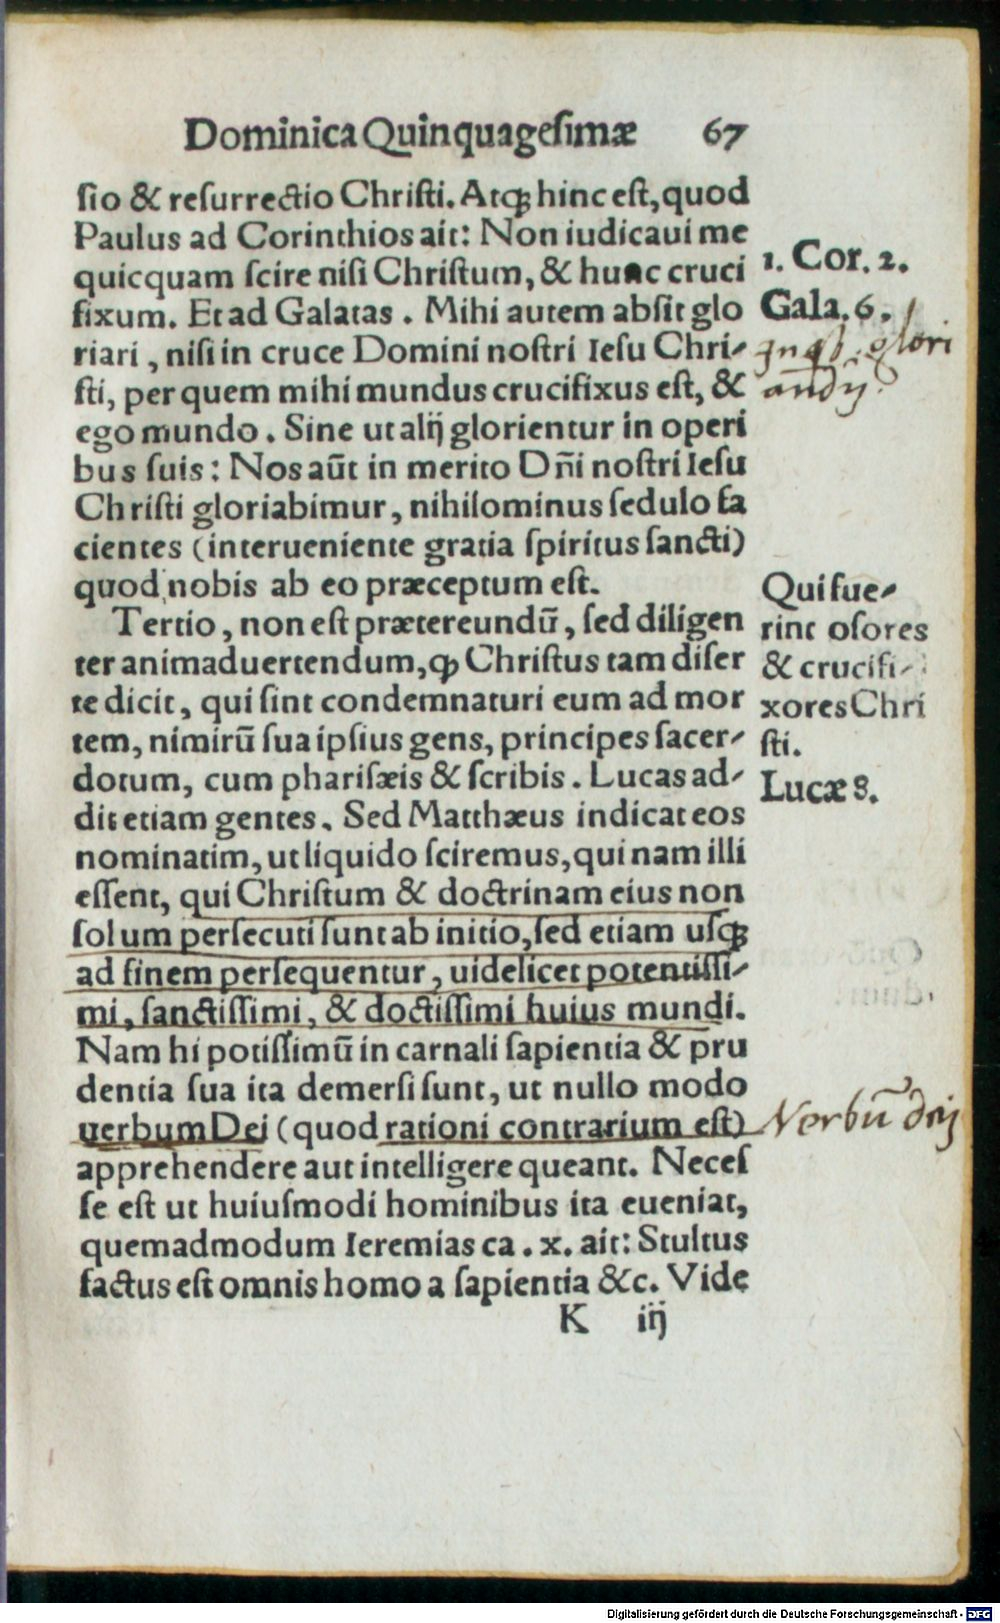 Dominica Quinquagesimæ 67
sio & resurrectio Christi. Atqꝫ hinc est, quod
Paulus ad Corinthios ait: Non iudicaui me
quicquam scire nisi Christum, & hunc cruci
fixum. Et ad Galatas. Mihi autem absit glo
riari, nisi in cruce Domini nostri Iesu Chri-
sti, per quem mihi mundus crucifixus est, &
ego mundo. Sine ut alij glorientur in operi
bus suis: Nos aūt in merito Dñi nostri Iesu
Christi gloriabimur, nihilominus sedulo fa
cientes (interueniente gratia spiritus sancti)
quod nobis ab eo præceptum est.
Tertio, non est prætereundū, sed diligen
ter animaduertendum, ꝙ Christus tam diser
te dicit, qui sint condemnaturi eum ad mor
tem, nimirū sua ipsius gens, principes sacer-
dotum, cum pharisæis & scribis. Lucas ad-
dit etiam gentes. Sed Matthæus indicat eos
nominatim, ut liquido sciremus, qui nam illi
essent, qui Christum & doctrinam eius non
solum persecuti sunt ab initio, sed etiam usqꝫ
ad finem persequentur, uidelicet potentissi-
mi, sanctissimi, & doctissimi huius mundi.
Nam hi potissimū in carnali sapientia & pru
dentia sua ita demersi sunt, ut nullo modo
uerbum Dei (quod rationi contrarium est)
apprehendere aut intelligere queant. Neces
se est ut huiusmodi hominibus ita eueniat,
quemadmodum Ieremias ca. x. ait: Stultus
factus est omnis homo a sapientia &c. Vide
K iij
1. Cor. 2.
Gala. 6.
glori
andū
Qui fue-
rint osores
& crucifi-
xores Chri
sti.
Lucæ 8.
Verbū dei
Digitalisierung gefördert durch die Deutsche Forschungsgemeinschaft - DFG